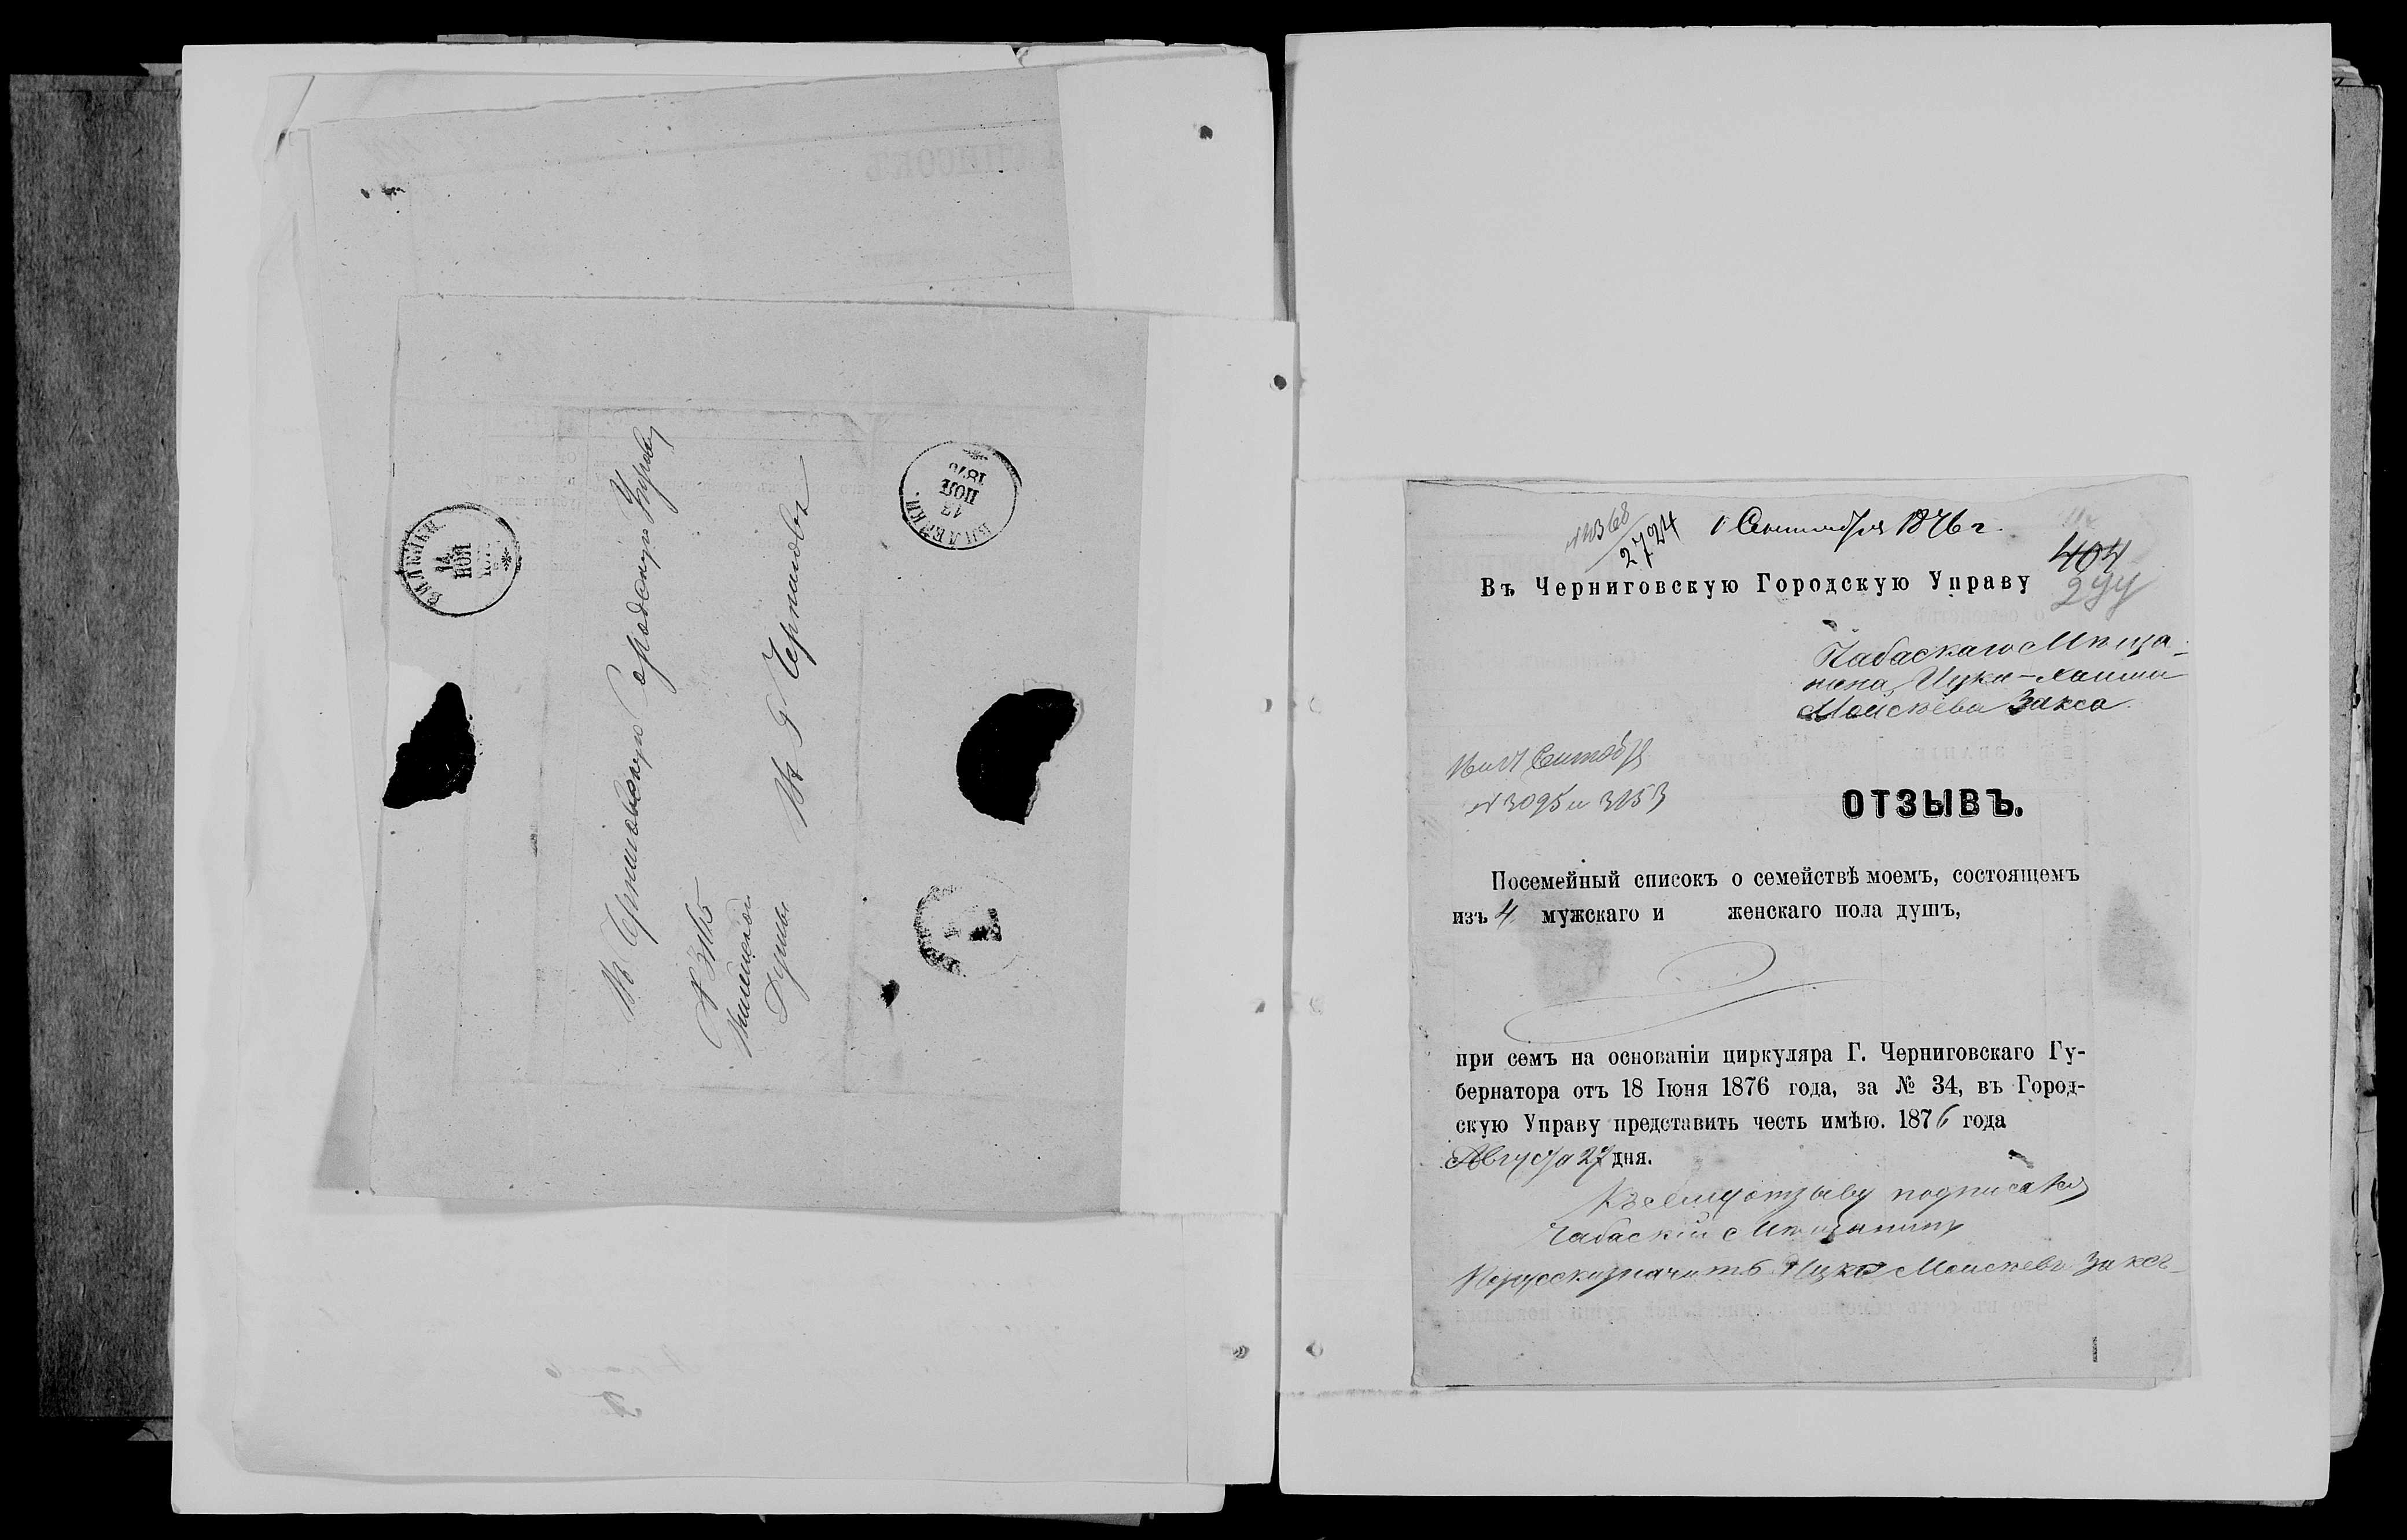 Въ Черниговскую Городскую Управу
№ 3115
Виленской
Думы
Въ г Черниговъ
ВИЛЕЙКИ
14
ПОЛ
ВИЛЕЙКИ
12
ПОЛ
1876
2724
1 Сентября 1876 г.
404
Въ Черниговскую Городскую Управу
299
Чабаскаго Мѣща-
нина Ицки-Хаима
Моисѣева Закса.
Сентября
№ 3095 и 3153
ОТЗЫВЪ.
Посемейный списокъ о семействѣ моемъ, состоящемъ
изъ 4 мужскаго и женскаго пола душъ,
при семъ на основаніи циркуляра Г. Черниговскаго Гу-
бернатора отъ 18 Іюня 1876 года, за № 34, въ Город-
скую Управу представить честь имѣю. 1876 года
Августа 27 дня.
Къ сему отзыву подписался
Чабаскій Мѣщанинъ
Порусски значитъ Ицка Моисѣевъ Заксъ